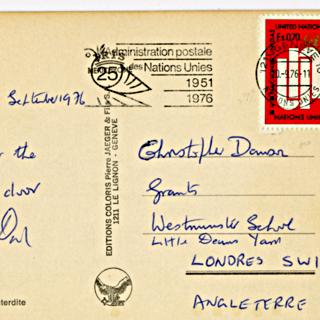 Administration postale
des Nations Unies
25
1951
1976
UNITED NATIONS
F.s. 0,70
-9.76-11
NATIONS UNIES
September 1976
the
door
EDITIONS COLORIS Pierre JAEGER & Fils S.
1211 LE LIGNON - GENEVE
Christopher
Grants
Westminster School
Little Deans Yard
LONDRES SW1
ANGLETERRE
nterdite